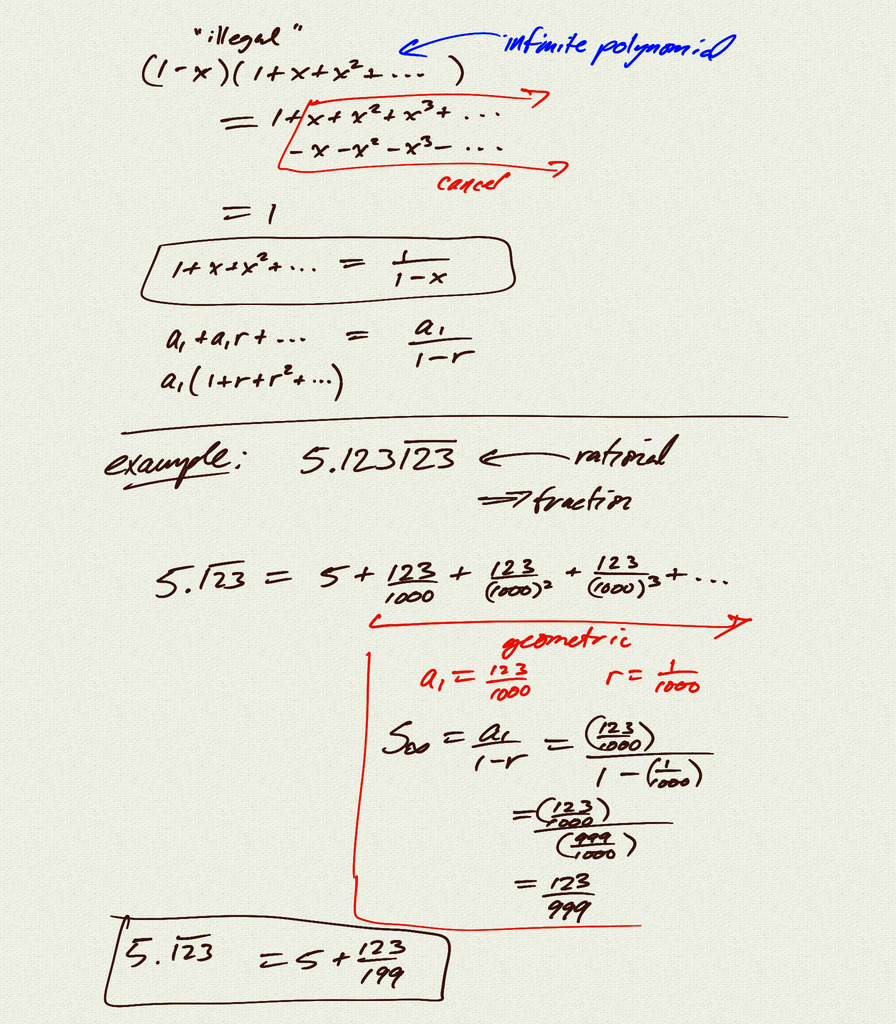 "illegal"
infinite polynomial
(1-x)(1+x+x²+...)
= 1+x+x²+x³+...
-x-x²-x³-...
cancel
= 1
1+x+x²+... = 1/(1-x)
a₁+a₁r+... = a₁/(1-r)
a₁(1+r+r²+...)
example: 5.1231̅2̅3̅ ← rational
⇒ fraction
5.1̅2̅3̅ = 5 + 123/1000 + 123/(1000)² + 123/(1000)³ + ...
geometric
a₁ = 123/1000 r = 1/1000
S∞ = a₁/(1-r) = (123/1000)/(1-(1/1000))
= (123/1000)/(999/1000)
= 123/999
5.1̅2̅3̅ = 5 + 123/199